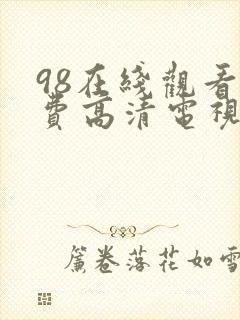 98在綫觀看
費高清電視
簾卷落花如雪